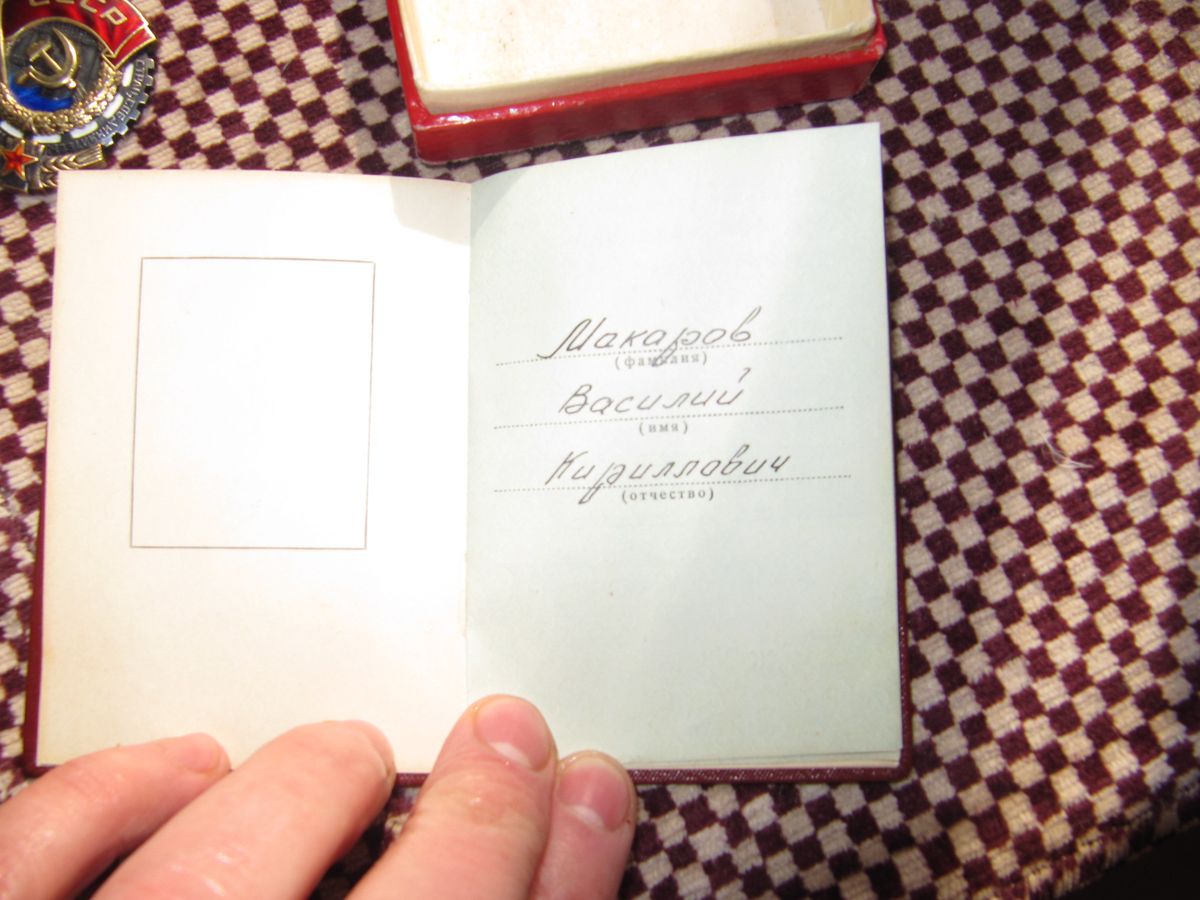 СССР
Макаров
(фамилия)
Василий
(имя)
Кириллович
(отчество)